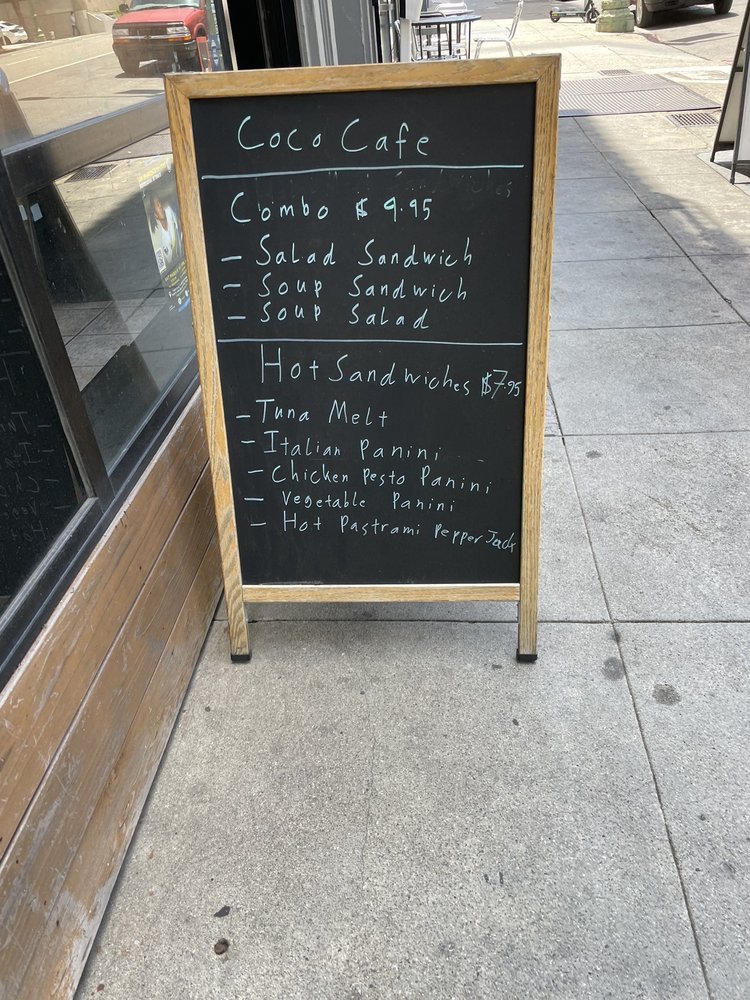 Coco Cafe
Combo $ 9.95
- Salad Sandwich
- Soup Sandwich
- Soup Salad
Hot Sandwiches $7.95
- Tuna Melt
- Italian Panini
- Chicken Pesto Panini
- Vegetable Panini
- Hot Pastrami Pepper Jack